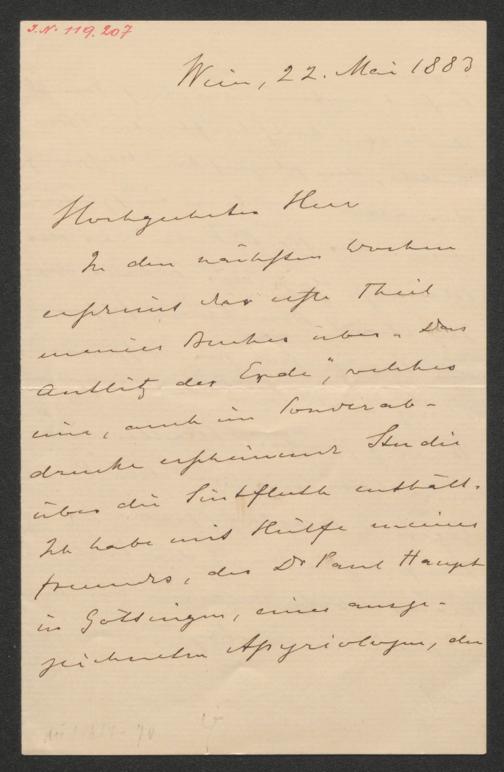 J.N. 119.207
Wien, 22. Mai 1883
Hochgeehrter Herr
In den nächsten Wochen
erscheint der erste Theil
meines Buches über „Das
Antlitz der Erde“, welches
eine, auch im Sonderab-
drucke erscheinende Studie
über die Sintfluth enthält.
Ich habe mit Hülfe meines
Freundes, des Dr Paul Haupt
in Göttingen, eines ausge-
zeichneten Assyriologen, den